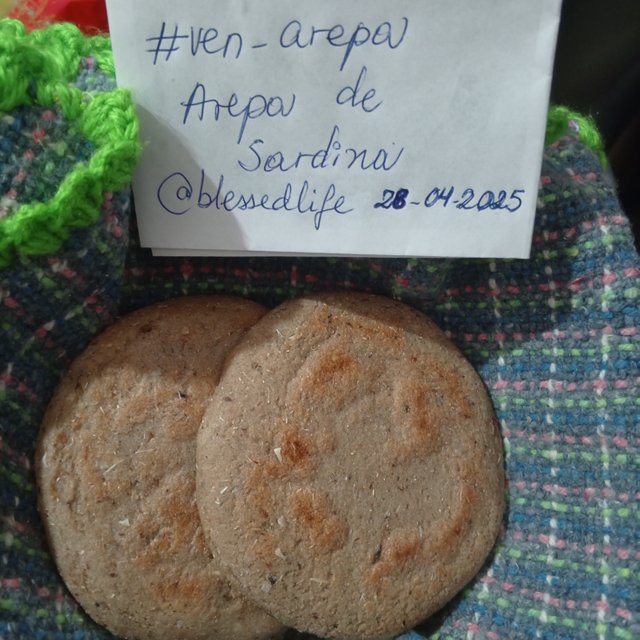 #ven-arepa
Arepa de
Sardina
@blessedlife 28-04-2025